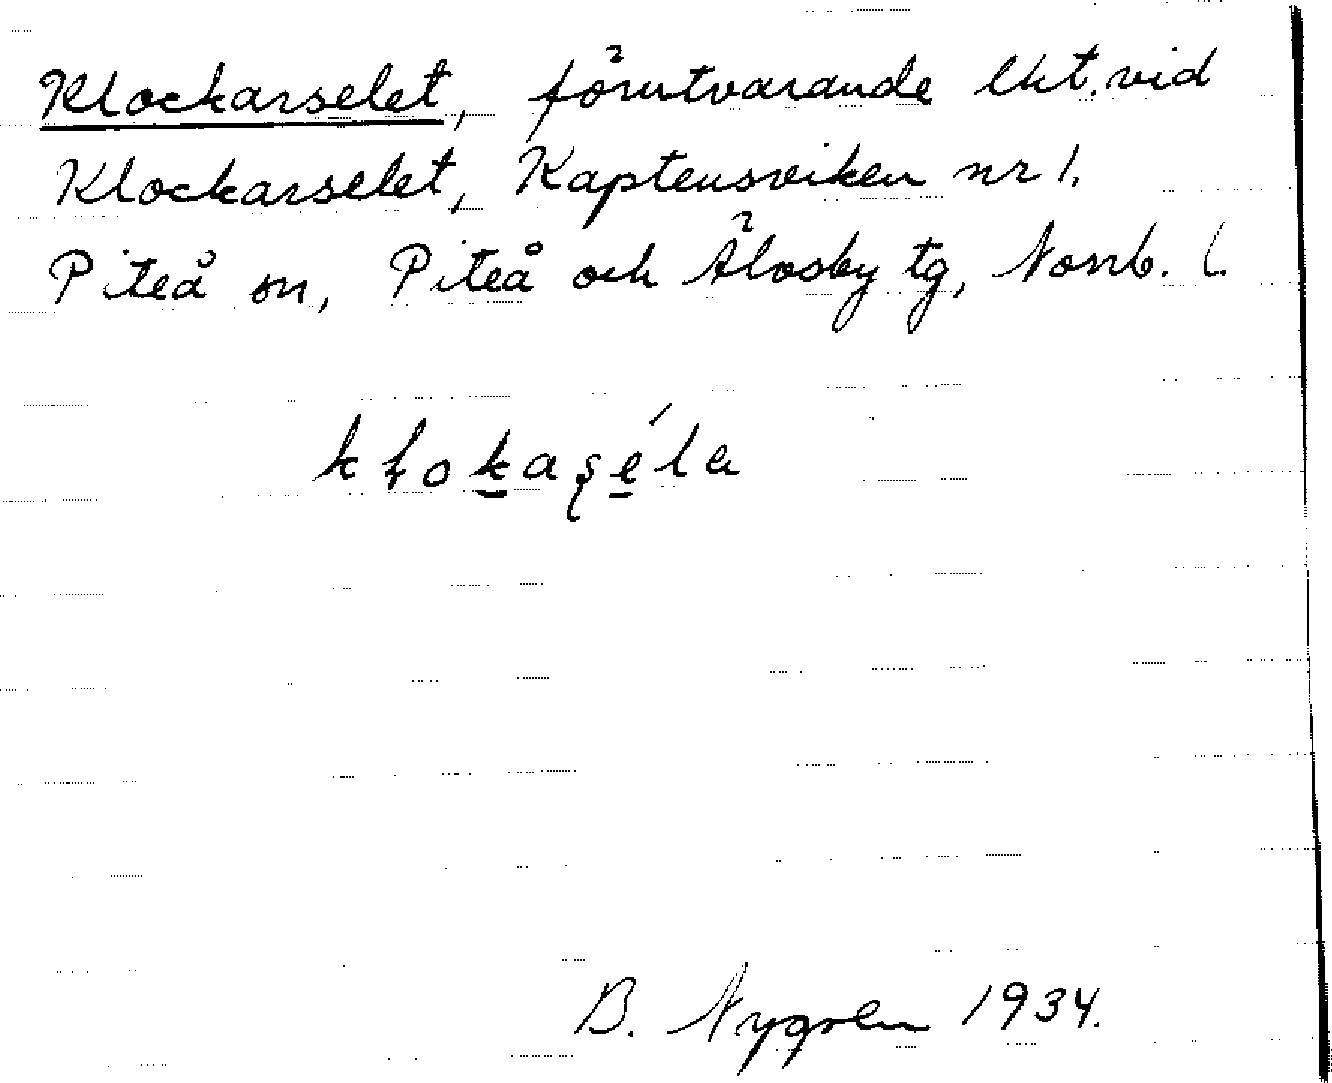 Klockarselet, förutvarande lht. vid
Klockarselet, Kaptensviken nr 1.
Piteå sn, Piteå och Älvsby tg, Norrb. l.
kłokaséla
B. Nygren 1934.